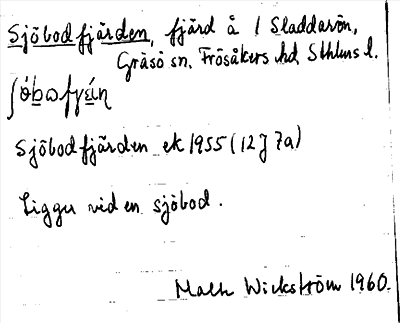 Sjöbodfjärden, fjärd å / Sladdarön,
Gräsö sn. Frösåkers hd Sthlms l.
Sjöbodfjärden ek 1955 (12J 7a)
Ligger vid en sjöbod.
Wickström 1960.